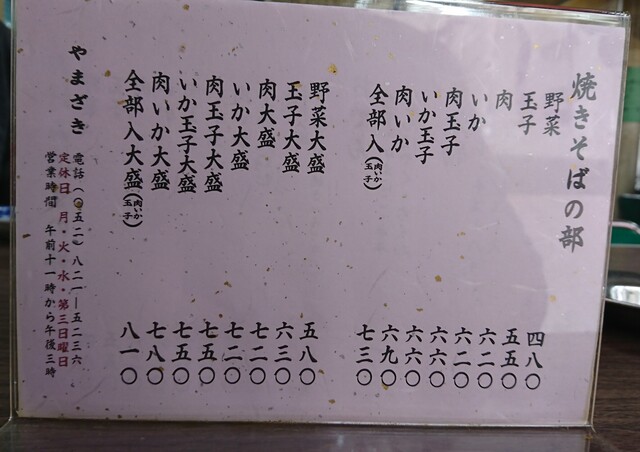 焼きそばの部
野菜 四八〇
玉子 五五〇
肉 六二〇
いか 六二〇
肉玉子 六六〇
いか玉子 六六〇
肉いか 六九〇
全部入(肉いか玉子) 七三〇
野菜大盛 五八〇
玉子大盛 六三〇
肉大盛 七二〇
いか大盛 七二〇
肉玉子大盛 七五〇
いか玉子大盛 七五〇
肉いか大盛 七八〇
全部入大盛(肉いか玉子) 八一〇
やまざき
電話(〇五二)八二一―五二三六
定休日 月・火・水・第三日曜日
営業時間 午前十一時から午後三時